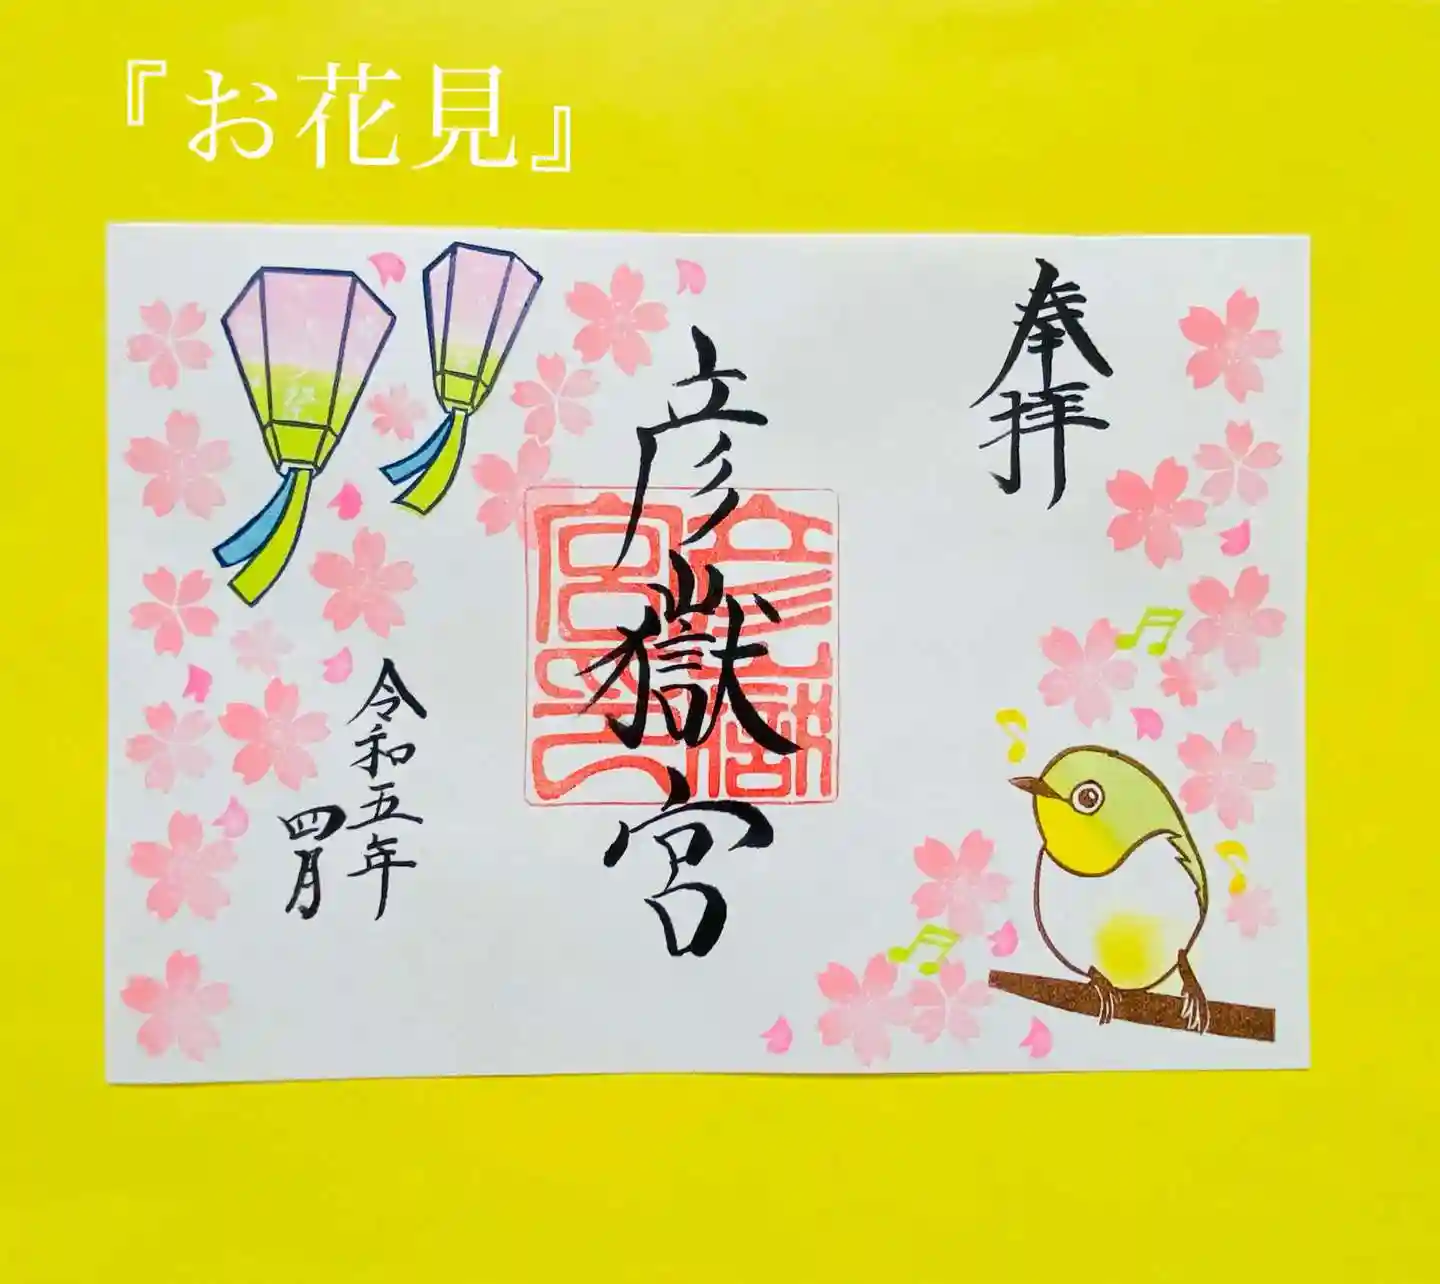 『お花見』
奉拝
彦嶽宮
令和五年
四月